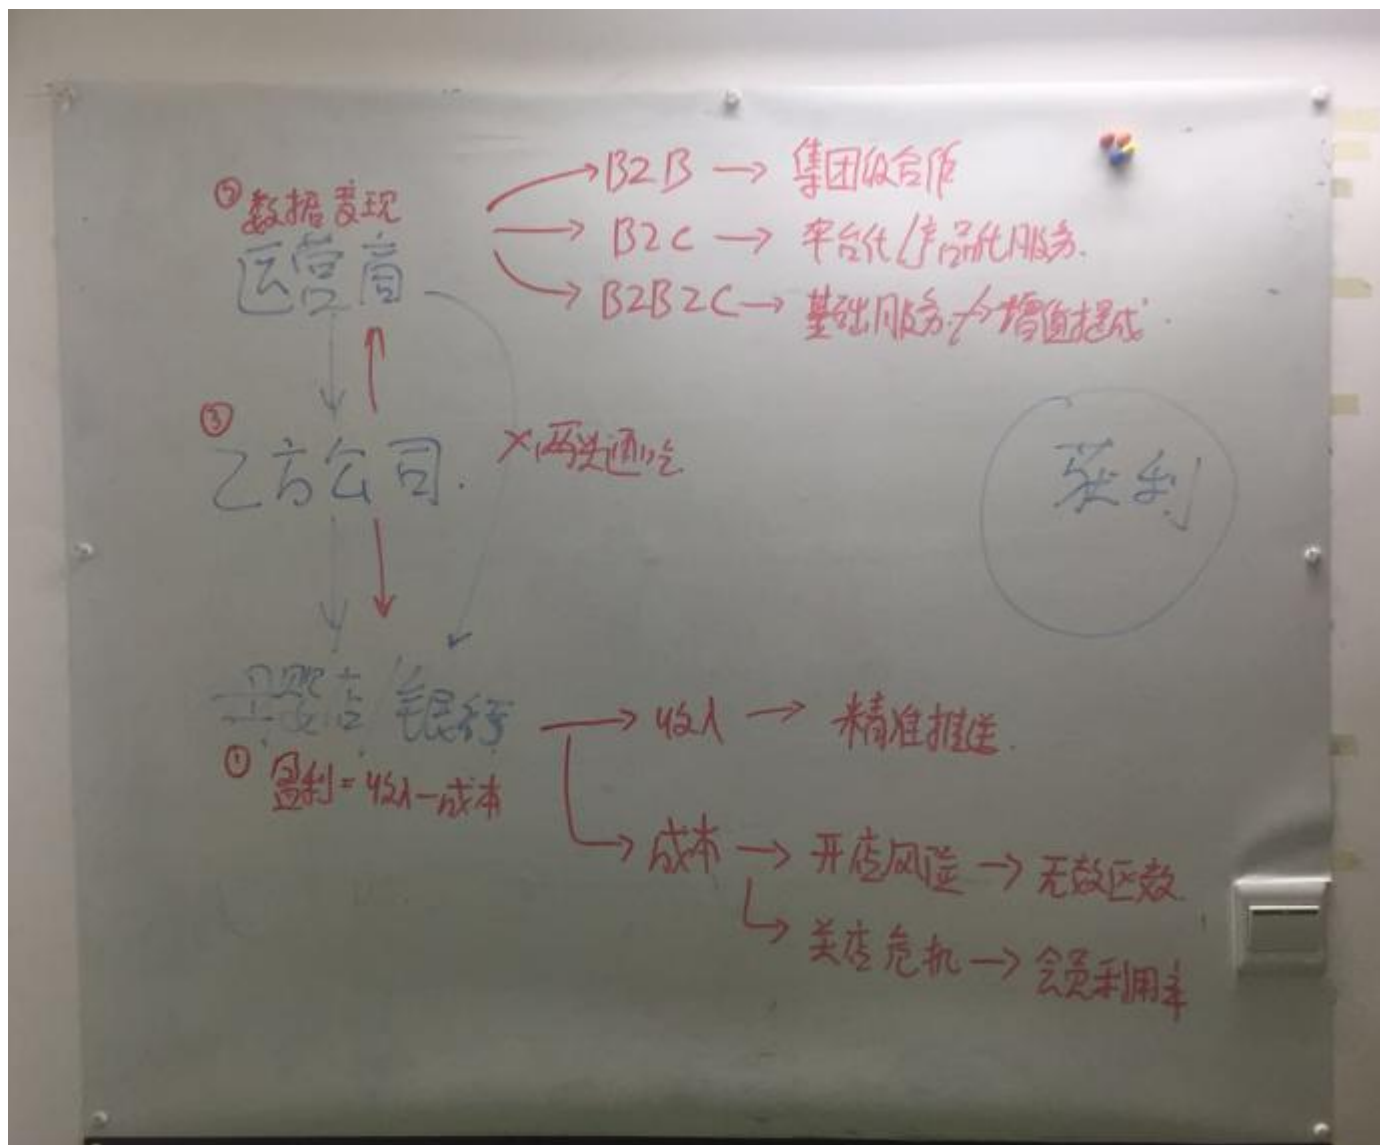 ② 数据变现
运营商
→ B2B → 集团级合作
→ B2C → 平台化/产品化服务.
→ B2B2C → 基础服务 + 增值提成.
③
乙方公司.
× 两头通吃
获利
母婴店/银行
① 盈利=收入-成本
→ 收入 → 精准推送.
→ 成本 → 开店风险 → 无效区效
→ 关店危机 → 会员利用率